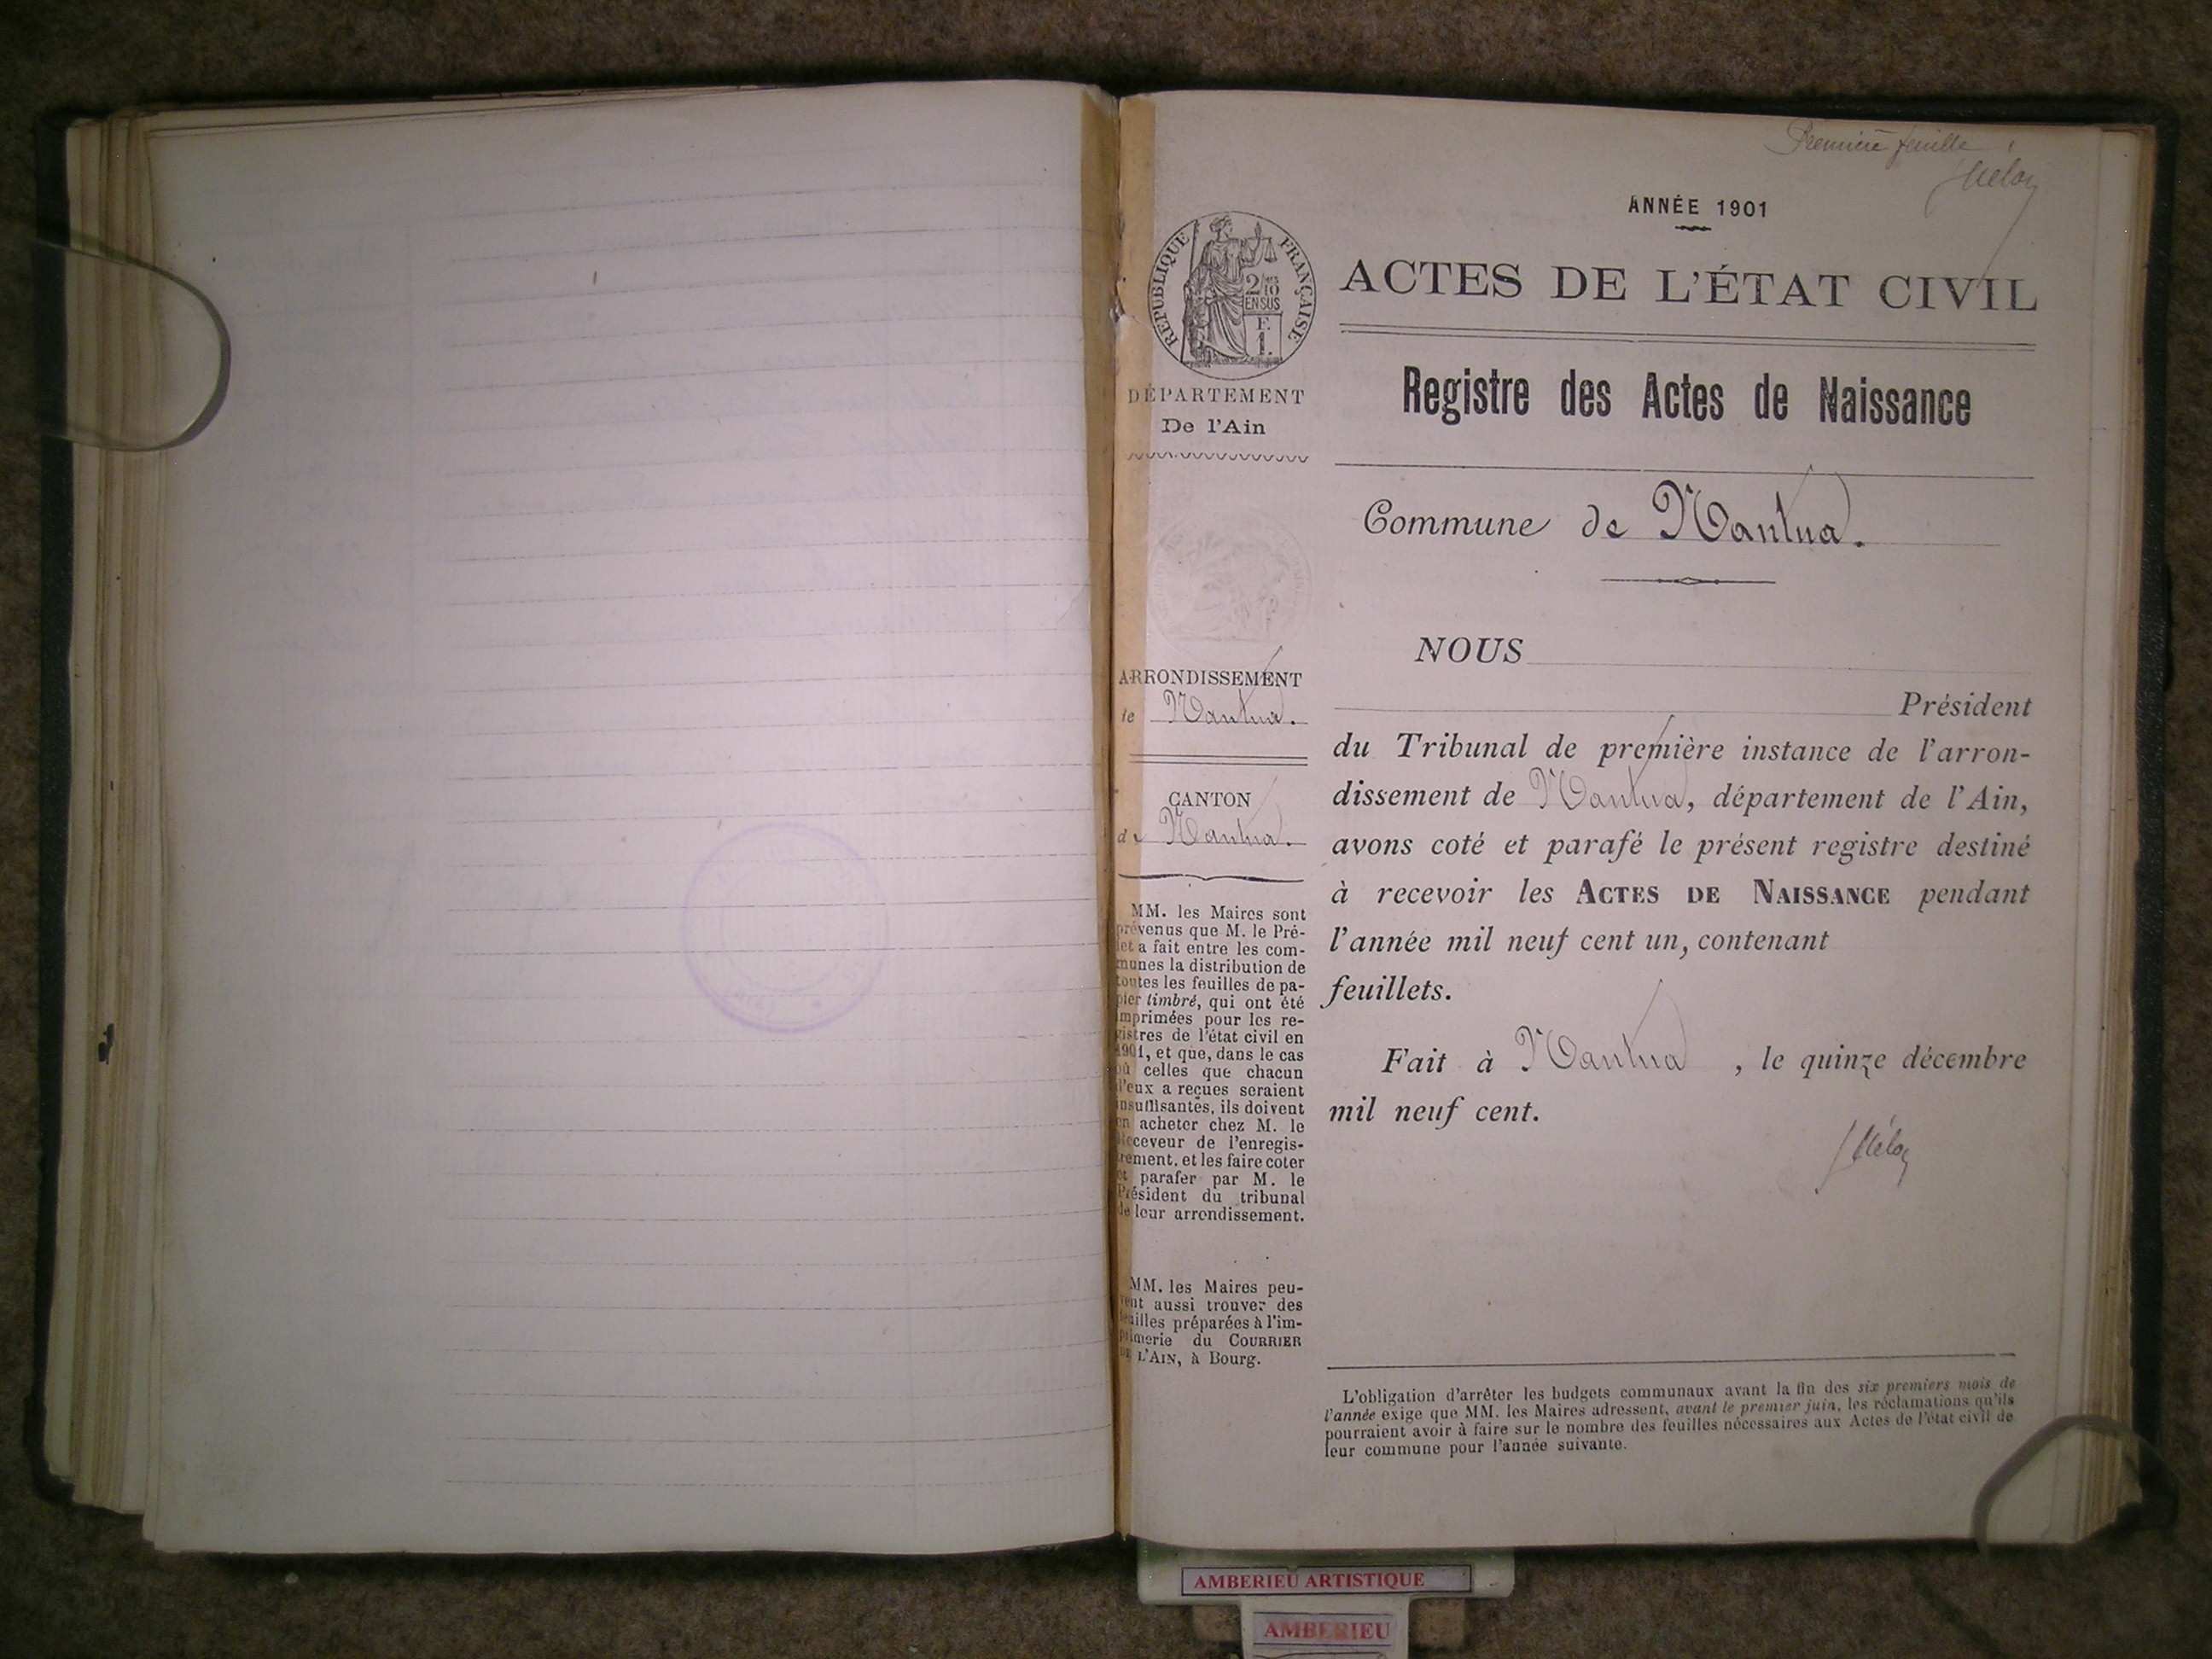 Première feuille
ANNÉE 1901
ACTES DE L'ÉTAT CIVIL
RÉPUBLIQUE FRANÇAISE
2/10 MES
EN SUS
F.
1.
DÉPARTEMENT
De l'Ain
Registre des Actes de Naissance
Commune de Nantua.
ARRONDISSEMENT
de Nantua.
CANTON
de Nantua.
MM. les Maires sont
prévenus que M. le Pré-
fet a fait entre les com-
munes la distribution de
toutes les feuilles de pa-
pier timbré, qui ont été
imprimées pour les re-
gistres de l'état civil en
1901, et que, dans le cas
où celles que chacun
d'eux a reçues seraient
insuffisantes, ils doivent
en acheter chez M. le
Receveur de l'enregis-
trement, et les faire coter
et parafer par M. le
Président du tribunal
de leur arrondissement.
MM. les Maires peu-
vent aussi trouver des
feuilles préparées à l'im-
primerie du COURRIER
DE L'AIN, à Bourg.
NOUS
Président
du Tribunal de première instance de l'arron-
dissement de Nantua, département de l'Ain,
avons coté et parafé le présent registre destiné
à recevoir les ACTES DE NAISSANCE pendant
l'année mil neuf cent un, contenant
feuillets.
Fait à Nantua, le quinze décembre
mil neuf cent.
L'obligation d'arrêter les budgets communaux avant la fin des six premiers mois de
l'année exige que MM. les Maires adressent, avant le premier juin, les réclamations qu'ils
pourraient avoir à faire sur le nombre des feuilles nécessaires aux Actes de l'état civil de
leur commune pour l'année suivante.
AMBERIEU ARTISTIQUE
AMBERIEU